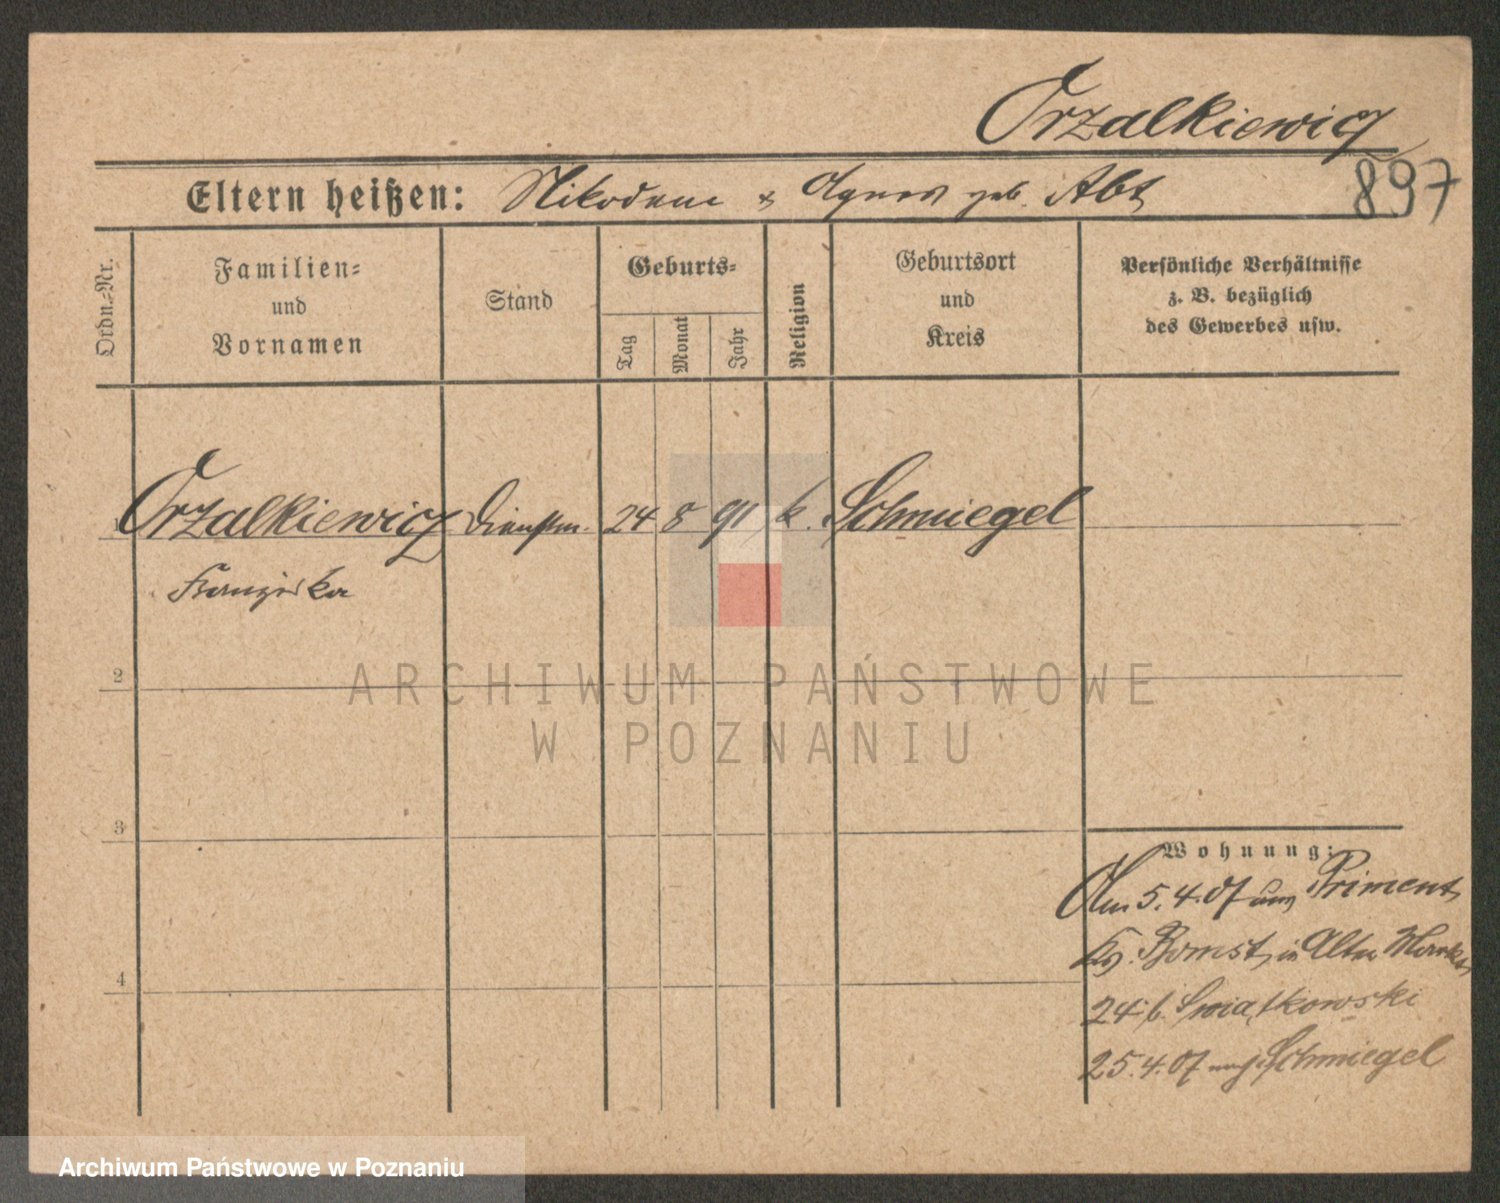 Orzalkiewicz
897
Eltern heißen: Nikodem & Agnes geb. Abt
Ordn.-Nr.
Familien-
und
Vornamen
Stand
Geburts-
Tag
Monat
Jahr
Religion
Geburtsort
und
Kreis
Persönliche Verhältnisse
z. B. bezüglich
des Gewerbes usw.
1 Orzalkiewicz Dienstm. 24 8 91 k. Schmiegel
Franziska
2
ARCHIWUM PAŃSTWOWE
W POZNANIU
3
Wohnung:
Am 5.4.07 aus Priment
Kr. Bomst, in Alter Markt
4
24 b. Swiatkowski
25.4.07 nach Schmiegel
Archiwum Państwowe w Poznaniu